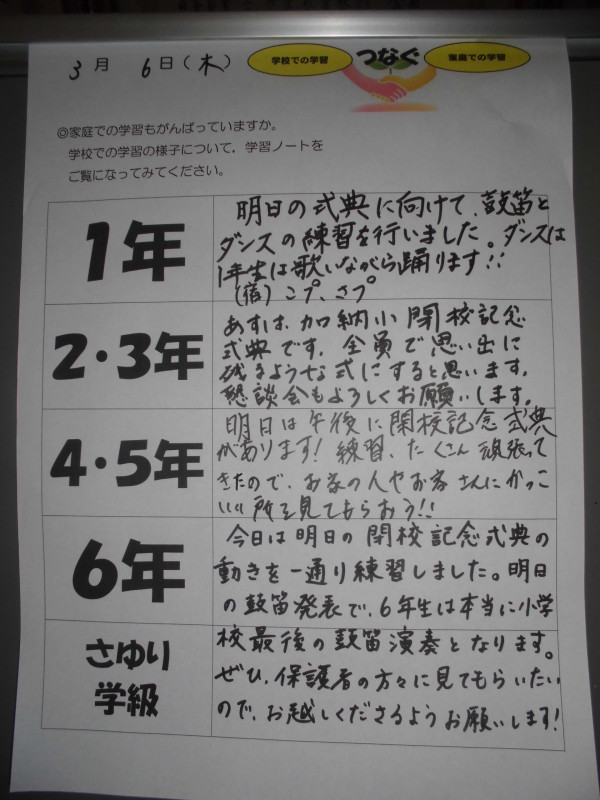 3月 6日(木)
学校での学習 つなぐ 家庭での学習
◎家庭での学習もがんばっていますか。
学校での学習の様子について，学習ノートを
ご覧になってみてください。
1年
明日の式典に向けて、鼓笛と
ダンスの練習を行いました。ダンスは
1年生は歌いながら踊ります!!
(宿)こプ、さプ
2・3年
あすは、加納小閉校記念
式典です。全員で思い出に
残るような式にすると思います。
懇談会もよろしくお願いします。
4・5年
明日は午後に閉校記念式典
があります!練習、たくさん頑張って
きたので、お家の人やお客さんにかっこ
いい所を見てもらおう!!
6年
今日は明日の閉校記念式典の
動きを一通り練習しました。明日
の鼓笛発表で、6年生は本当に小学
さゆり
学級
校最後の鼓笛演奏となります。
ぜひ、保護者の方々に見てもらいたい
ので、お越しくださるようお願いします!